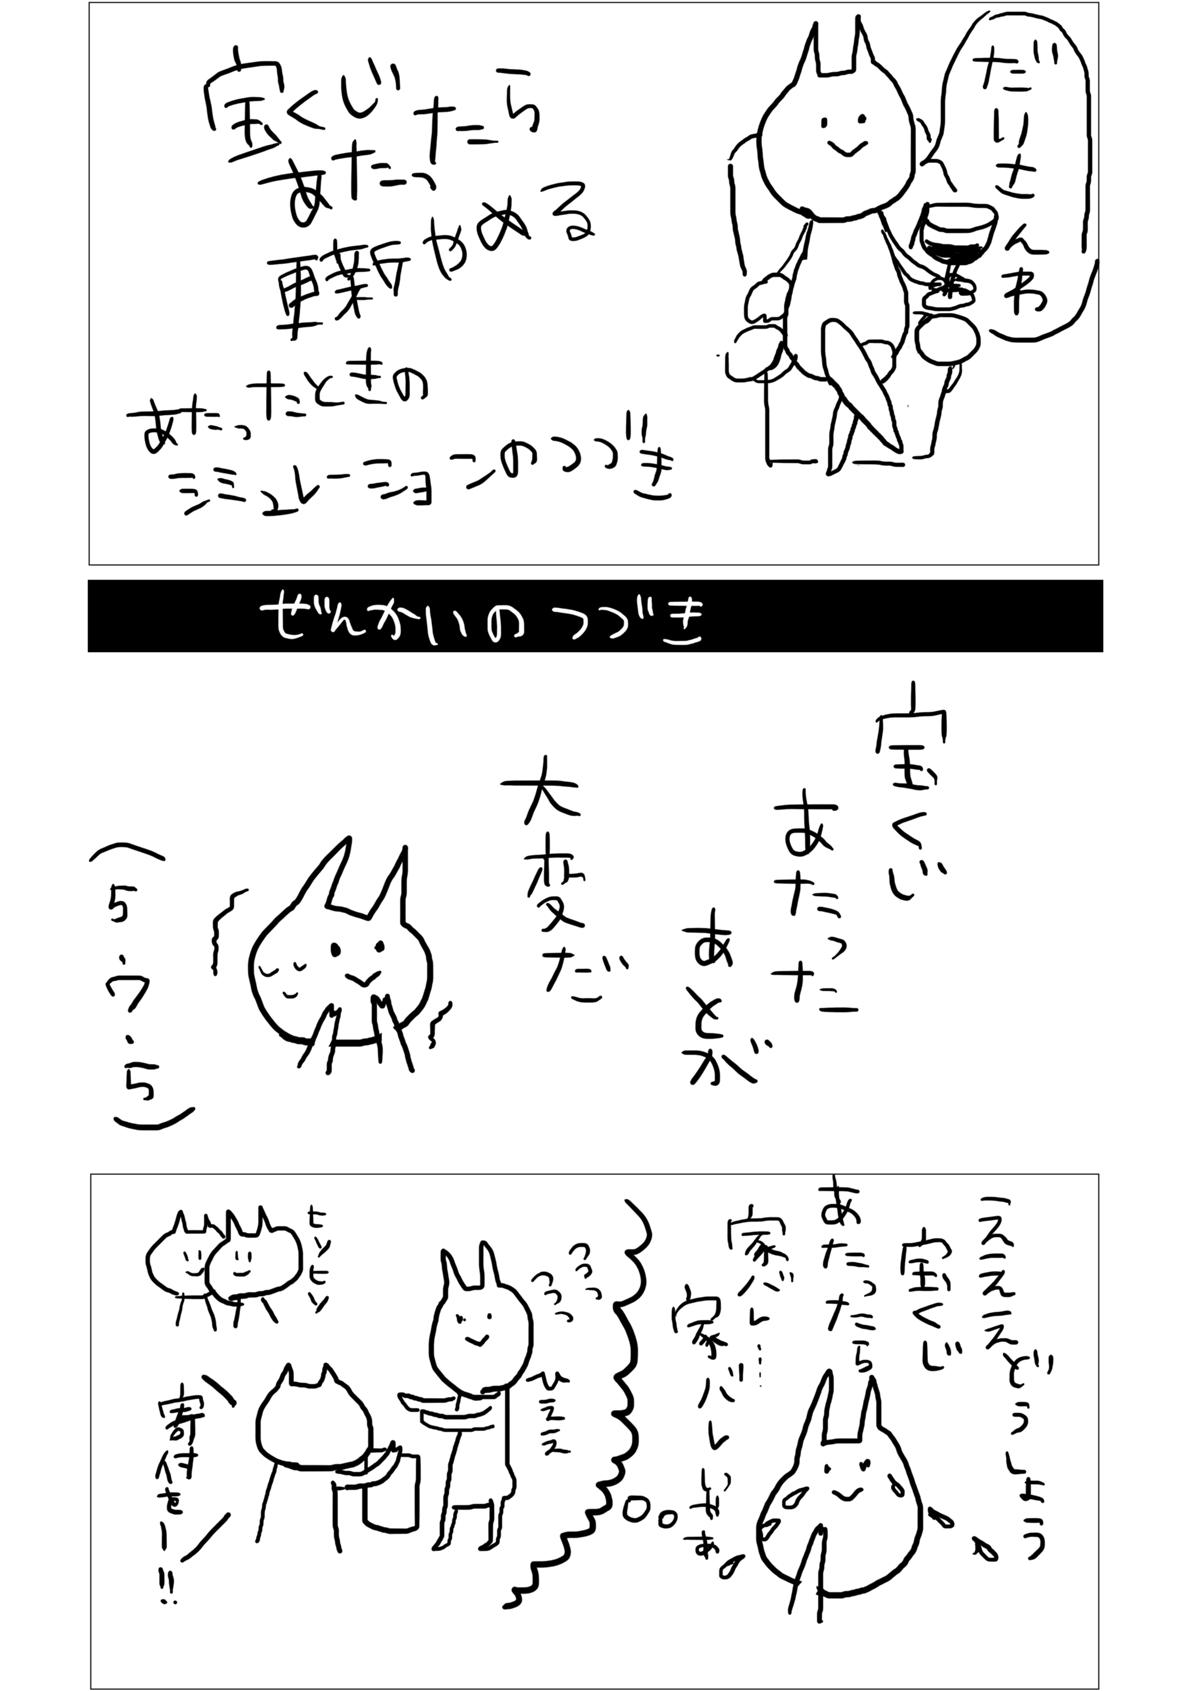 だりさんわ
宝くじ
あたったら
更新やめる
あたったときの
シミュレーションのつづき
ぜんかいのつづき
宝くじ
あたった
あとが
大変だ
(5・ウ・5)
ええええどうしよう
宝くじ
あたったら
家バレ……
家バレいやぁ
うろっ
うろっ
ひええ
ヒソヒソ
寄付をー!!